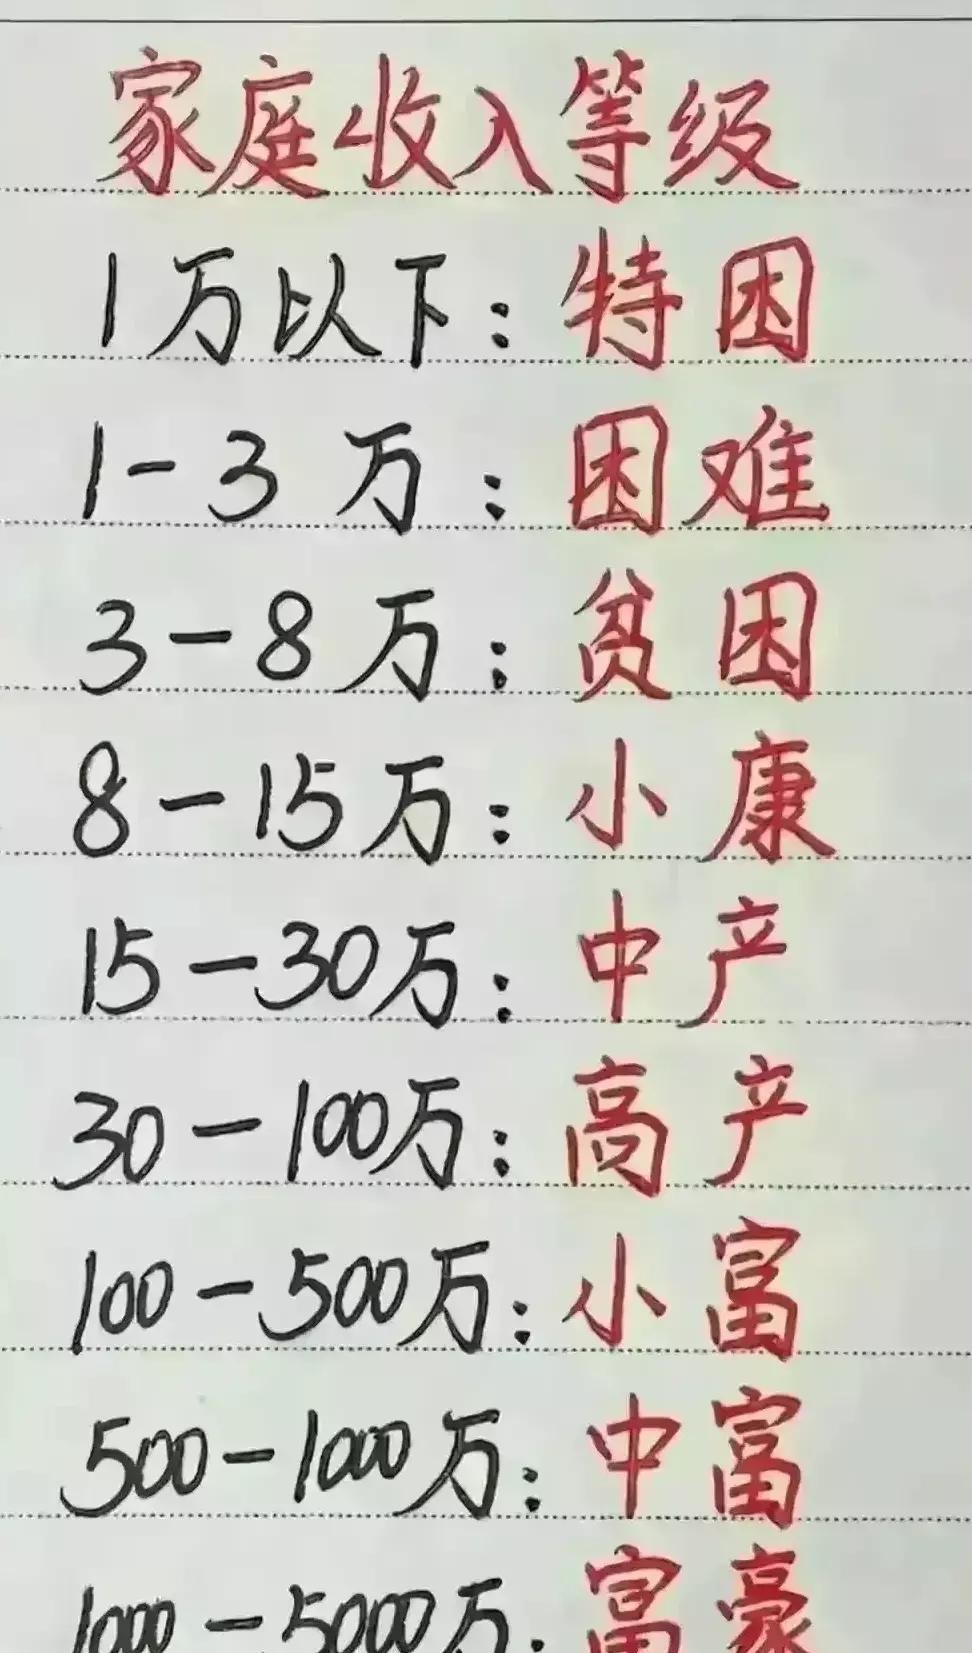 家庭收入等级
1万以下：特困
1-3万：困难
3-8万：贫困
8-15万：小康
15-30万：中产
30-100万：高产
100-500万：小富
500-1000万：中富
1000-5000万：富豪